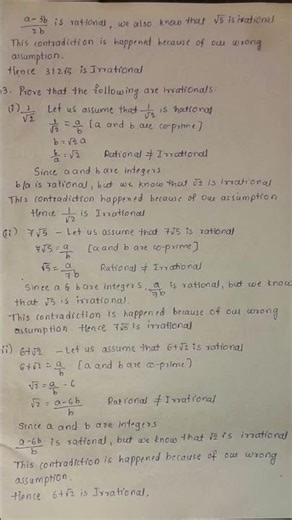 a-3b/2b is rational, we also know that √5 is irrational
This contradiction is happened because of our wrong
assumption.
Hence 3+2√5 is Irrational
3. Prove that the following are irrationals.
(i) 1/√2 Let us assume that 1/√2 is rational
1/√2 = a/b [a and b are co-prime]
b = √2 a
b/a = √2 Rational ≠ Irrational
Since a and b are integers
b/a is rational, but we know that √2 is irrational
This contradiction happened because of our assumption
Hence 1/√2 is Irrational
(ii) 7√5 - Let us assume that 7√5 is rational
7√5 = a/b [a and b are co-prime]
√5 = a/7b Rational ≠ Irrational
Since a & b are integers. a/7b is rational, but we know
that √5 is irrational.
This contradiction is happened because of our wrong
assumption Hence 7√5 is irrational
ii) 6+√2 - Let us assume that 6+√2 is rational
6+√2 = a/b [a and b are co-prime]
√2 = a/b - 6
√2 = a-6b/b Rational ≠ Irrational
Since a and b are integers
a-6b/b is rational, but we know that √2 is irrational
This contradiction is happened because of our wrong
assumption.
Hence 6+√2 is Irrational.